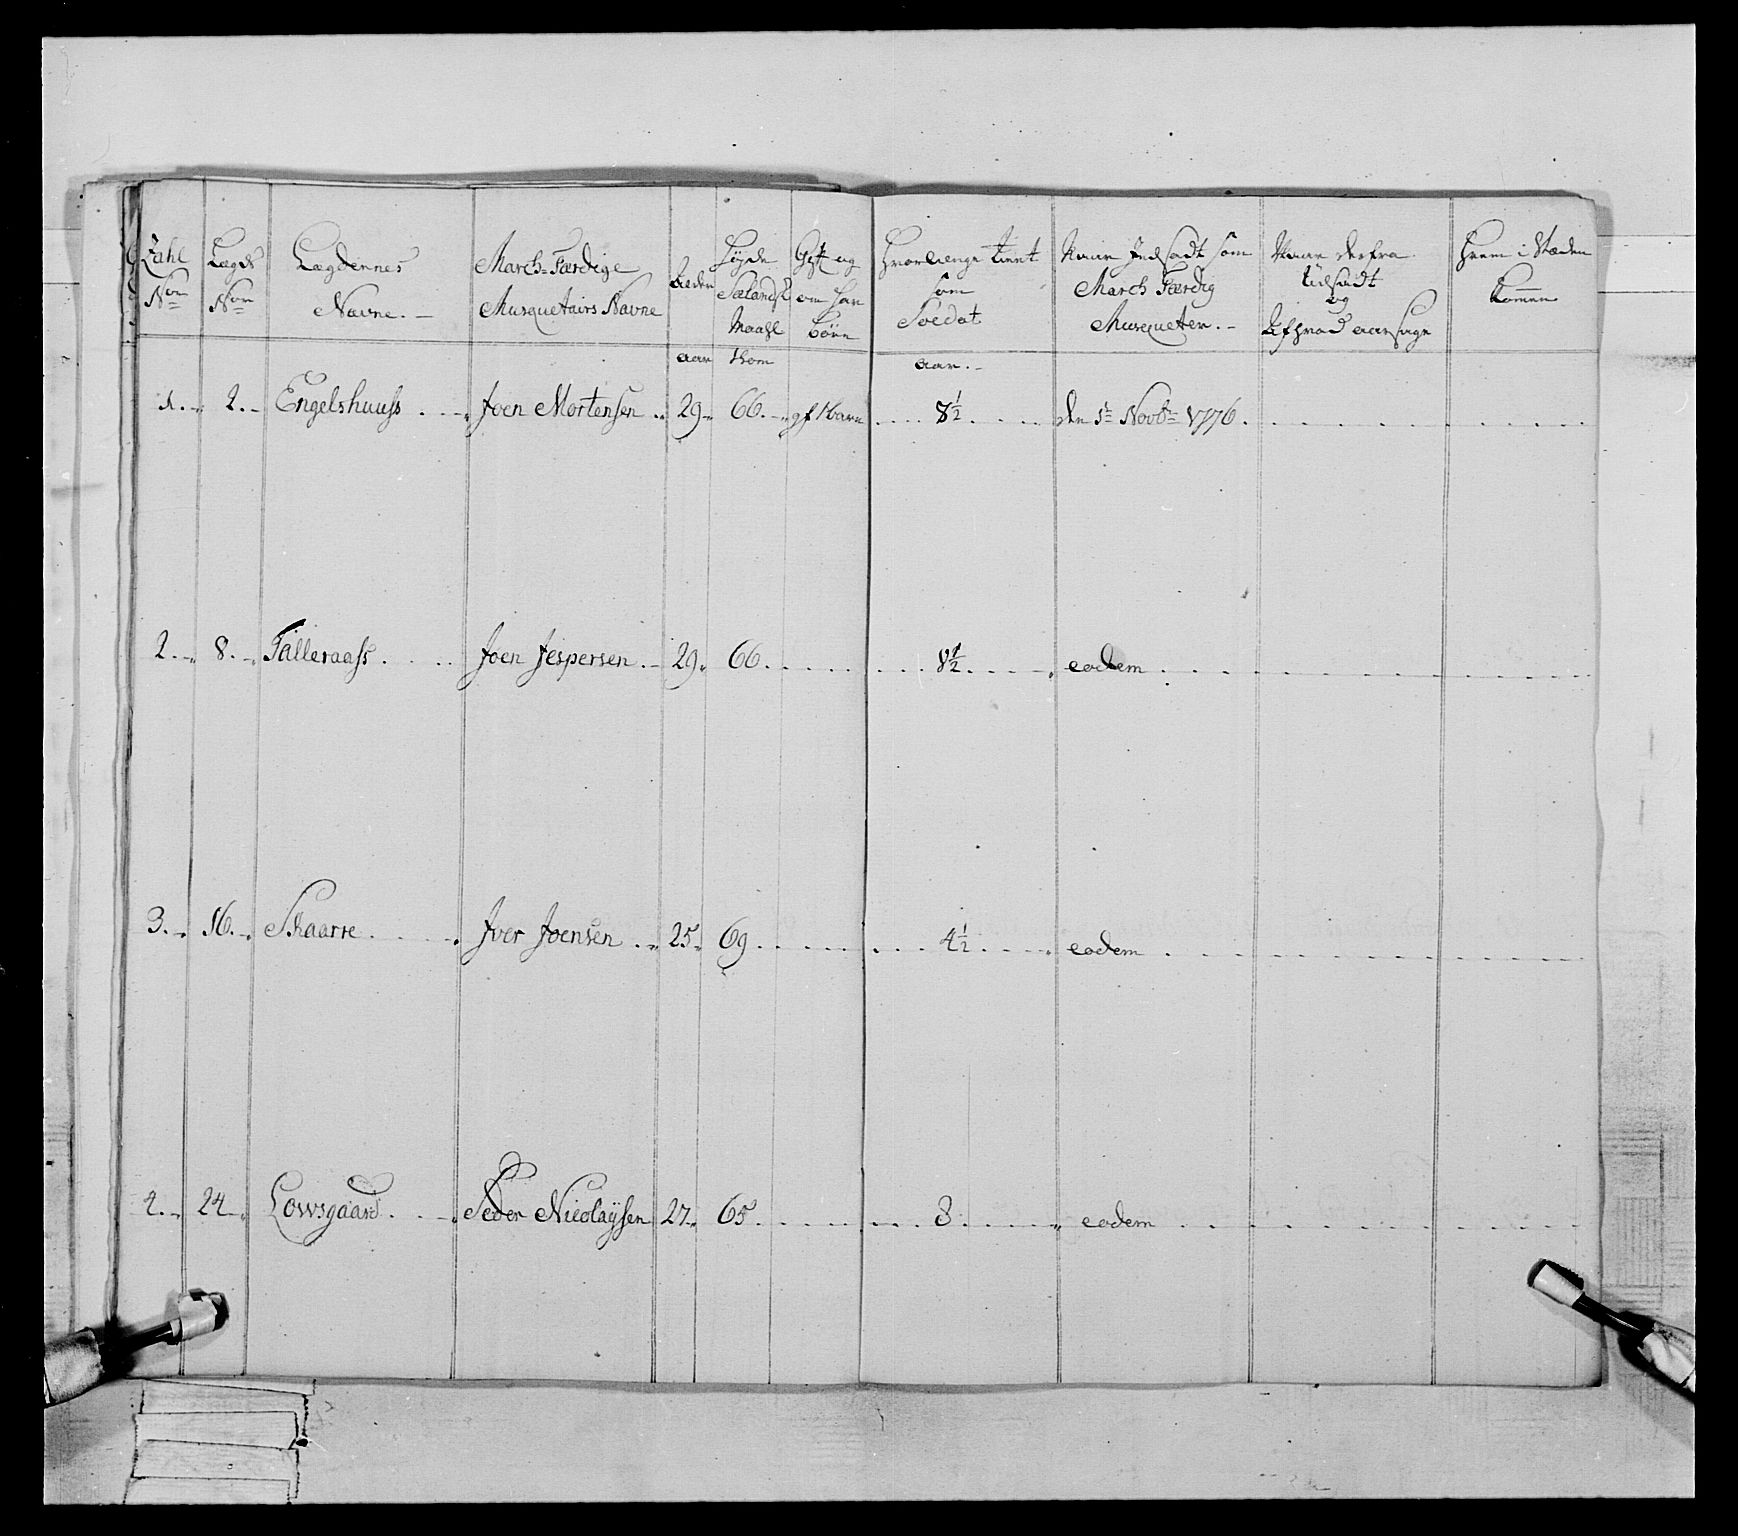 Zahl Non
Lægds Non
Lægdernes Navne. –
March-Færdige Musquetairs Navne
Alder
Höyde Sælandsk Maahl
Gift og om har Börn
Hvor længe tient som Soldat
Naar Indsadt som March Færdig Musqueter. –
Naar derfra Udsadt og Af hvad aarsage
Hvem i Stæden kommen
aar
thom
aar. –
1. 2. Engelshuuss Joen Mortensen 29 66 gf 1 barn 8½ den 1te Novbr 1776.
2. 8. Falleraass Joen Jespersen 29 66 8½ eodem
3. 16. Skaarre Iver Joensen 25 69 4½ eodem
4. 24 Lowsgaard Peder Nicolaÿsen 27 65 3 eodem